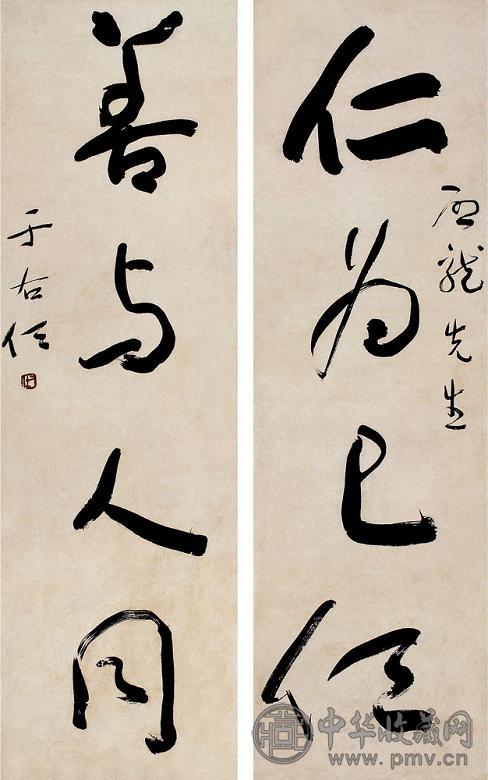 仁为己任
龙先生
善与人同
于右任
中华收藏网
www.pmv.cn